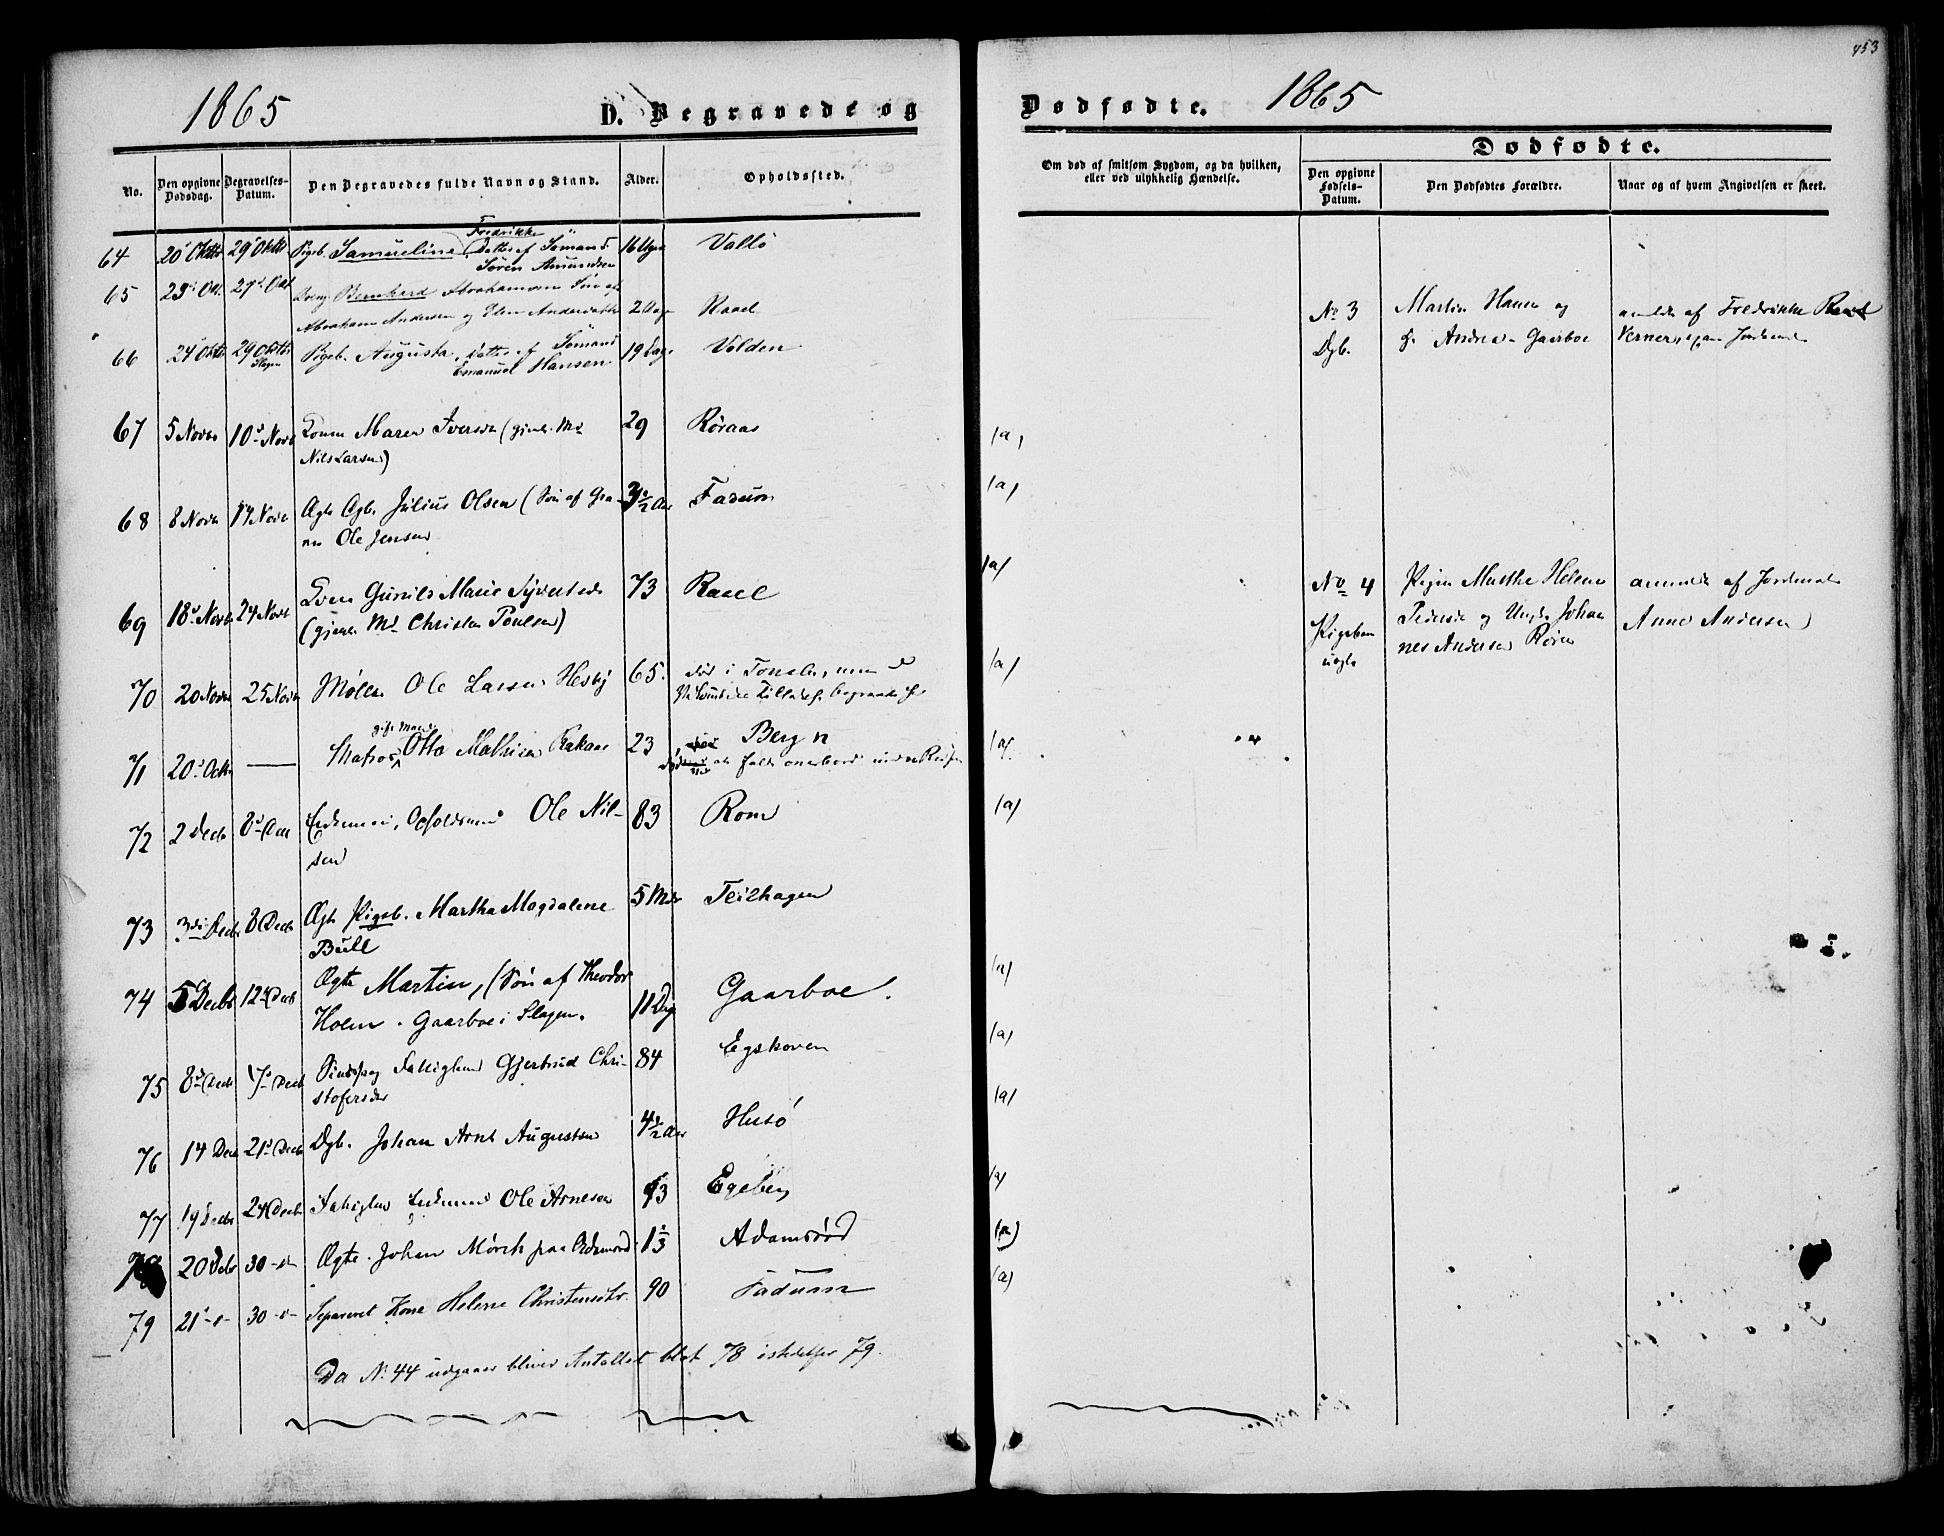 453
1865
D. Begravede og
Dødfødte.
1865
No.
Den opgivne Dødsdag.
Begravelses-Datum.
Den Begravedes fulde Navn og Stand.
Alder.
Opholdssted.
Om død af smitsom Sygdom, og da hvilken,
eller ved ulykkelig Hændelse.
Dødfødte.
Den opgivne Fødsels-Datum.
Den Dødfødtes Forældre.
Naar og af hvem Angivelsen er skeet.
Fredrikke
64 20 Oktbr 29 Oktbr Pigeb. Samueline Datter af Sømand 16 Uger Vallø
Søren Amundsen
65 23 Oct. 29 Oct Dreng Bernhard Abrahamsen Søn af
Abraham Andersen og Elen Andersdatter 2 Uger Raael
66 24 Oktbr 29 Oktbr Pigeb. Augusta, Datter af Sømand 19 Dage Volden
Slagen Emanuel Hansen
67 5 Novbr 10 Novb Konen Maren Iversdtr (gjenl. Md 29 Røraas (a)
Nils Larsen)
68 8 Novbr 14 Novbr Ægte Dgb. Julius Olsen (Søn af 3 1/2 Aar Fadum (a)
Ole Jensen
69 18 Novbr 24 Novbr Konen Gunild Marie Syvertsdr 73 Raael (a)
(gjenl. Md Christen Poulsen)
70 20 Novbr 25 Novbr Møller Ole Larsen Hesby 65. død i Tønsb., men (a)
begravet her
gift Mand
71 20 Octbr — Matros Otto Mathisen 23 Bergn (a)
faldt overbord
72 2 Decbr 8 Dec Ole Nil- 83 Rom (a)
sen
73 3die Decbr 8 Decb Ægte Pigeb. Martha Magdalene 5 Mdr Teilhagen
Bull
74 5 Decbr 12 Decb Ægte Martin, (Søn af Theodor 11 Dag Gaarboe. (a)
Holm. Gaarboe i Slagen.
75 8 Decb Decb Fattiglem Gjertrud Chri- 84 Egskoven (a)
stofersdr
76 14 Decb 21 Decb Dgb. Johan Arnt Augustsen 4 1/2 Aar Husø (a)
77 19 Decbr 24 Decbr Fattiglem Ole Arnesen Egeberg (a)
78 20 Decbr 30 Ægte Johan Mørch paa 1 1/3 Adamsrød (a)
79 21 30 Separeret Kone Helene Christensdtr. 90 Fadum (a)
Da No 44 udgaaer bliver Antallet blot 78 istedetfor 79.
No 3 Martin Hansen og anmeldt af Fredrikke Raael
Dgb. Andrea Gaarboe
No 4 Pigen Marthe Helene anmeldt af Jordmoder
Pigebarn Pedersdr og Ungk. Johan Anne Andersen
uægte nes Andersen